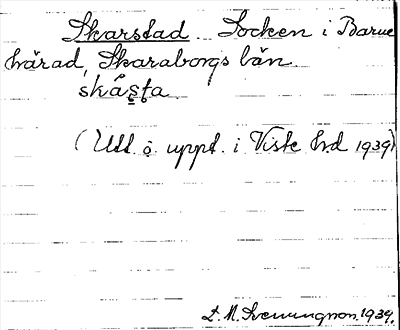 Skarstad. Socken i Barne
härad, Skaraborgs län.
skås̱ṯa
(Utt. o. uppt. i Viste hd 1939)
D. M. Svenungsson. 1939.